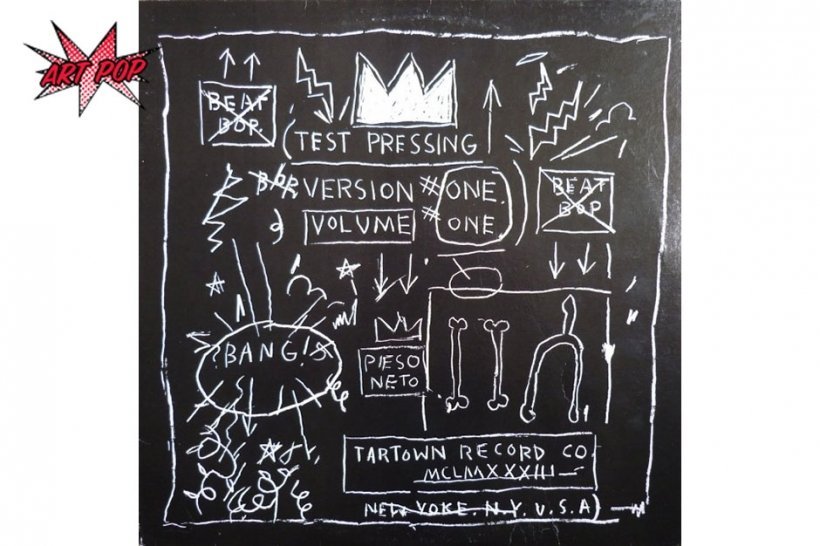 ART POP
BEAT
BOP
TEST PRESSING
BOP VERSION #ONE
VOLUME #ONE
BEAT
BOP
BANG!
PIESO
NETO
TARTOWN RECORD CO
MCLMXXXIII
NEW YOKE. N.Y. U.S.A